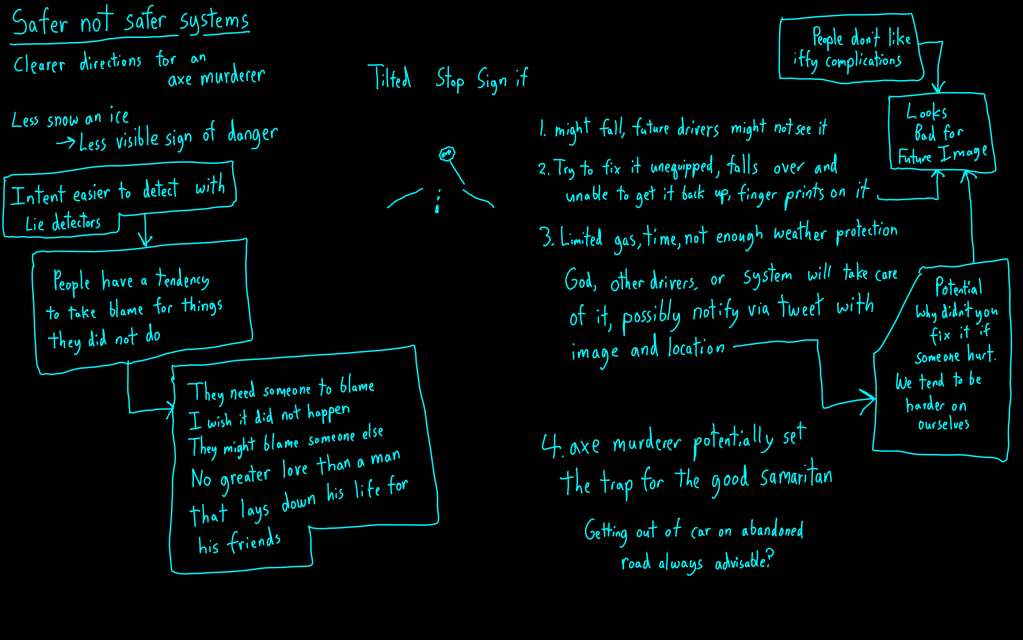 Safer not safer systems
Clearer directions for an
axe murderer
Less snow an ice
→ Less visible sign of danger
Intent easier to detect with
Lie detectors
People have a tendency
to take blame for things
they did not do
They need someone to blame
I wish it did not happen
They might blame someone else
No greater love than a man
that lays down his life for
his friends
Tilted Stop Sign if
1. might fall, future drivers might not see it
2. Try to fix it unequipped, falls over and
unable to get it back up, finger prints on it
3. Limited gas, time, not enough weather protection
God, other drivers, or system will take care
of it, possibly notify via tweet with
image and location
4. axe murderer potentially set
the trap for the good samaritan
Getting out of car on abandoned
road always advisable?
People don't like
iffy complications
Looks
Bad for
Future Image
Potential
why didn't you
fix it if
someone hurt.
We tend to be
harder on
ourselves